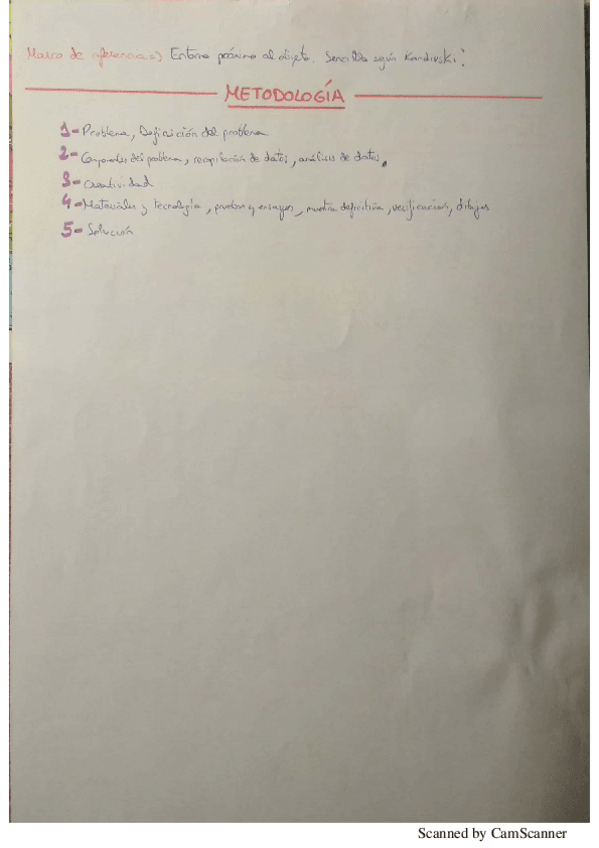 Marco de referencia => Entorno próximo al objeto. Sencillo según Kandivski:
METODOLOGÍA
1- Problema, Definición del problema
2- Componentes del problema, recopilación de datos, análisis de datos.
3- Creatividad
4- Materiales y tecnología, pruebas y ensayos, muestra definitiva, verificacion, dibujos
5- Solución
Scanned by CamScanner